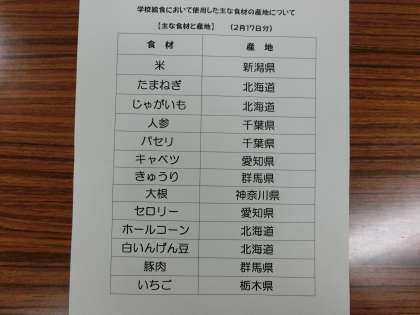 学校給食において使用した主な食材の産地について
【主な食材と産地】 (2月17日分)
食 材 産 地
米 新潟県
たまねぎ 北海道
じゃがいも 北海道
人参 千葉県
パセリ 千葉県
キャベツ 愛知県
きゅうり 群馬県
大根 神奈川県
セロリー 愛知県
ホールコーン 北海道
白いんげん豆 北海道
豚肉 群馬県
いちご 栃木県